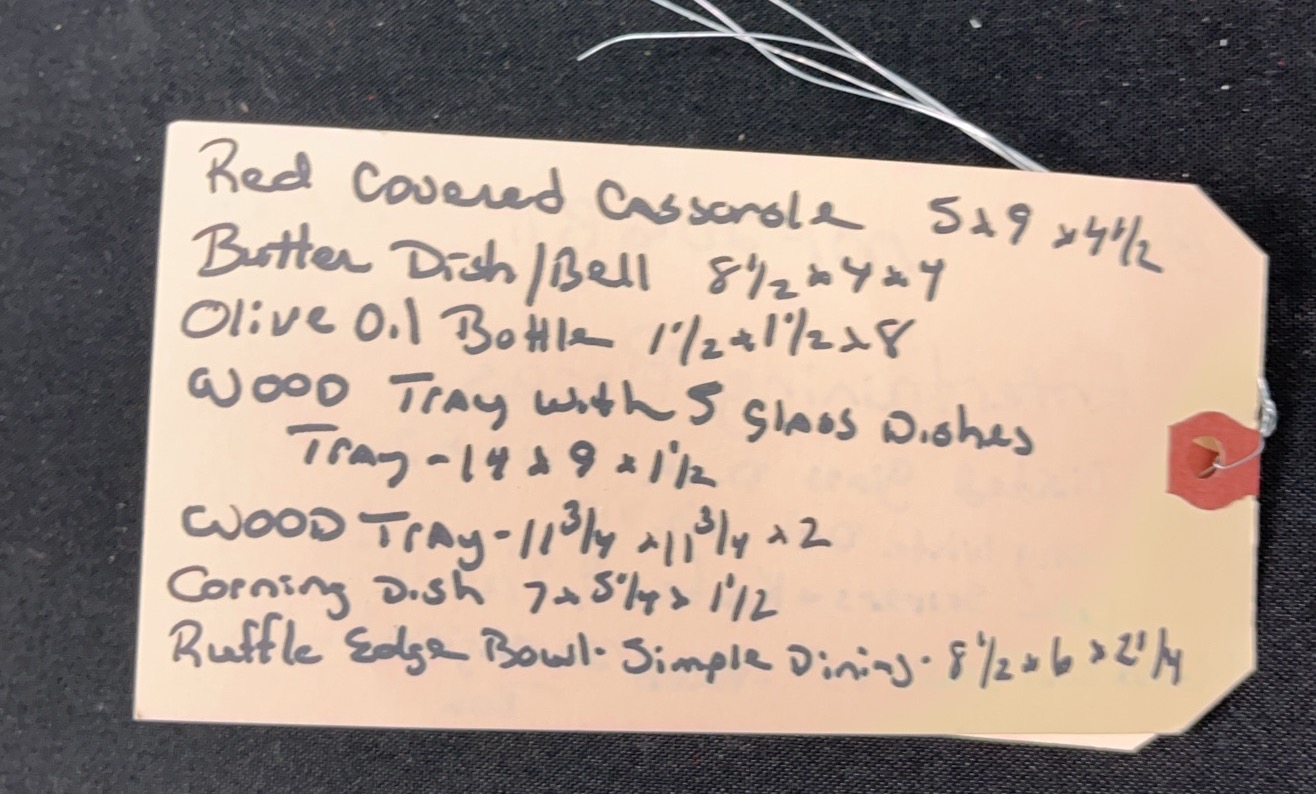 Red Covered Casserole 5x9 x4 1/2
Butter Dish/Bell 8 1/2 x 4 x 4
Olive Oil Bottle 1 1/2 x 1 1/2 x 8
WOOD Tray with 5 Glass Dishes
Tray - 14 x 9 x 1 1/2
WOOD Tray - 11 3/4 x 11 3/4 x 2
Corning Dish 7 x 5 1/4 x 1 1/2
Ruffle Edge Bowl - Simple Dining - 8 1/2 x 6 x 2 1/4